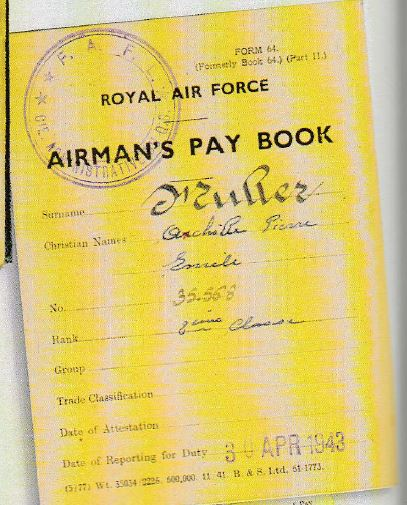 F. A. F. L.
FORM 64.
(Formerly Book 64.) (Part II.)
ROYAL AIR FORCE
AIRMAN'S PAY BOOK
Surname
Christian Names Achille Pierre
Emile
No. 35.568
Rank 2ème Classe
Group
Trade Classification
Date of Attestation
Date of Reporting for Duty 30 APR 1943
(5177) Wt. 35034/2226. 600,000. 11/41. B. & S. Ltd. 51-1773.